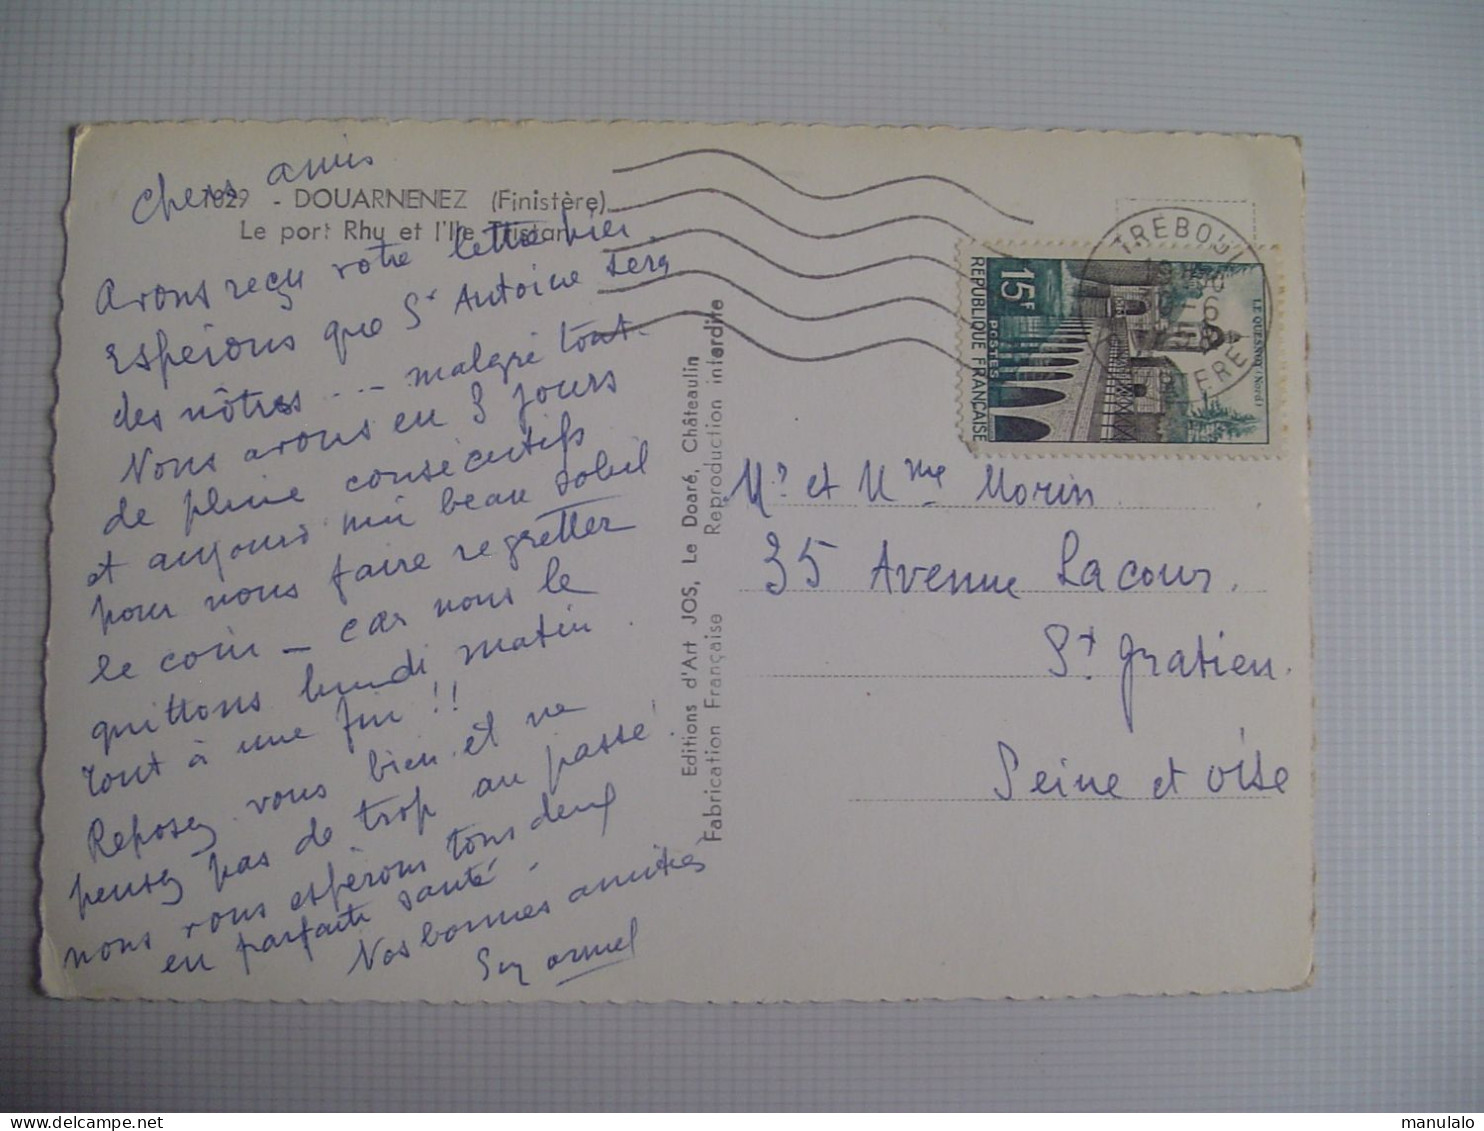 chers amis
7829 - DOUARNENEZ (Finistère)
Le port Rhu et l'Ile Tristan
Avons reçu votre lettre hier.
Espérons que St Antoine sera
des nôtres ... malgré tout.
Nous avons eu 3 jours
de pluie consécutifs
et aujourd'hui beau soleil
pour nous faire regretter
le coin - car nous le
quittons lundi matin.
Tout à une fin !!
Reposez vous bien et ne
pensez pas de trop au passé
nous vous espérons tous deux
en parfaite santé -
Nos bonnes amitiés
Suz armel
Editions d'Art JOS, Le Doaré, Châteaulin
Fabrication Française Reproduction interdite
TREBOUL
6
15F
REPUBLIQUE FRANÇAISE
POSTES
LE QUESNOY (Nord)
Mr et Mme Morin
35 Avenue Lacour.
St Gratien.
Seine et Oise
www.delcampe.net
manulalo